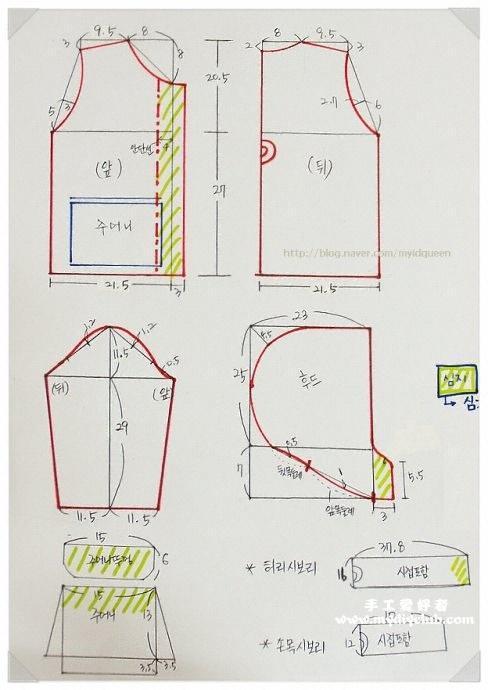 9.5 8
3
8
5 3
20.5
안단선 4
(앞)
주머니
27
21.5 3
8 9.5
2 3
2.7 6
(뒤)
http://blog.naver.com/myidqueen
21.5
1.2 1.2
11.5 0.5
(뒤) (앞)
29
11.5 11.5
23
4.5
25
후드
0.5
7
뒷목둘레
앞목둘레
5.5
3
심지
15
6
15
주머니 13
3.5 3.5
* 허리시보리
37.8
16 시접포함
* 손목시보리
12 시접포함
手工爱好者
www.mydiyclub.com